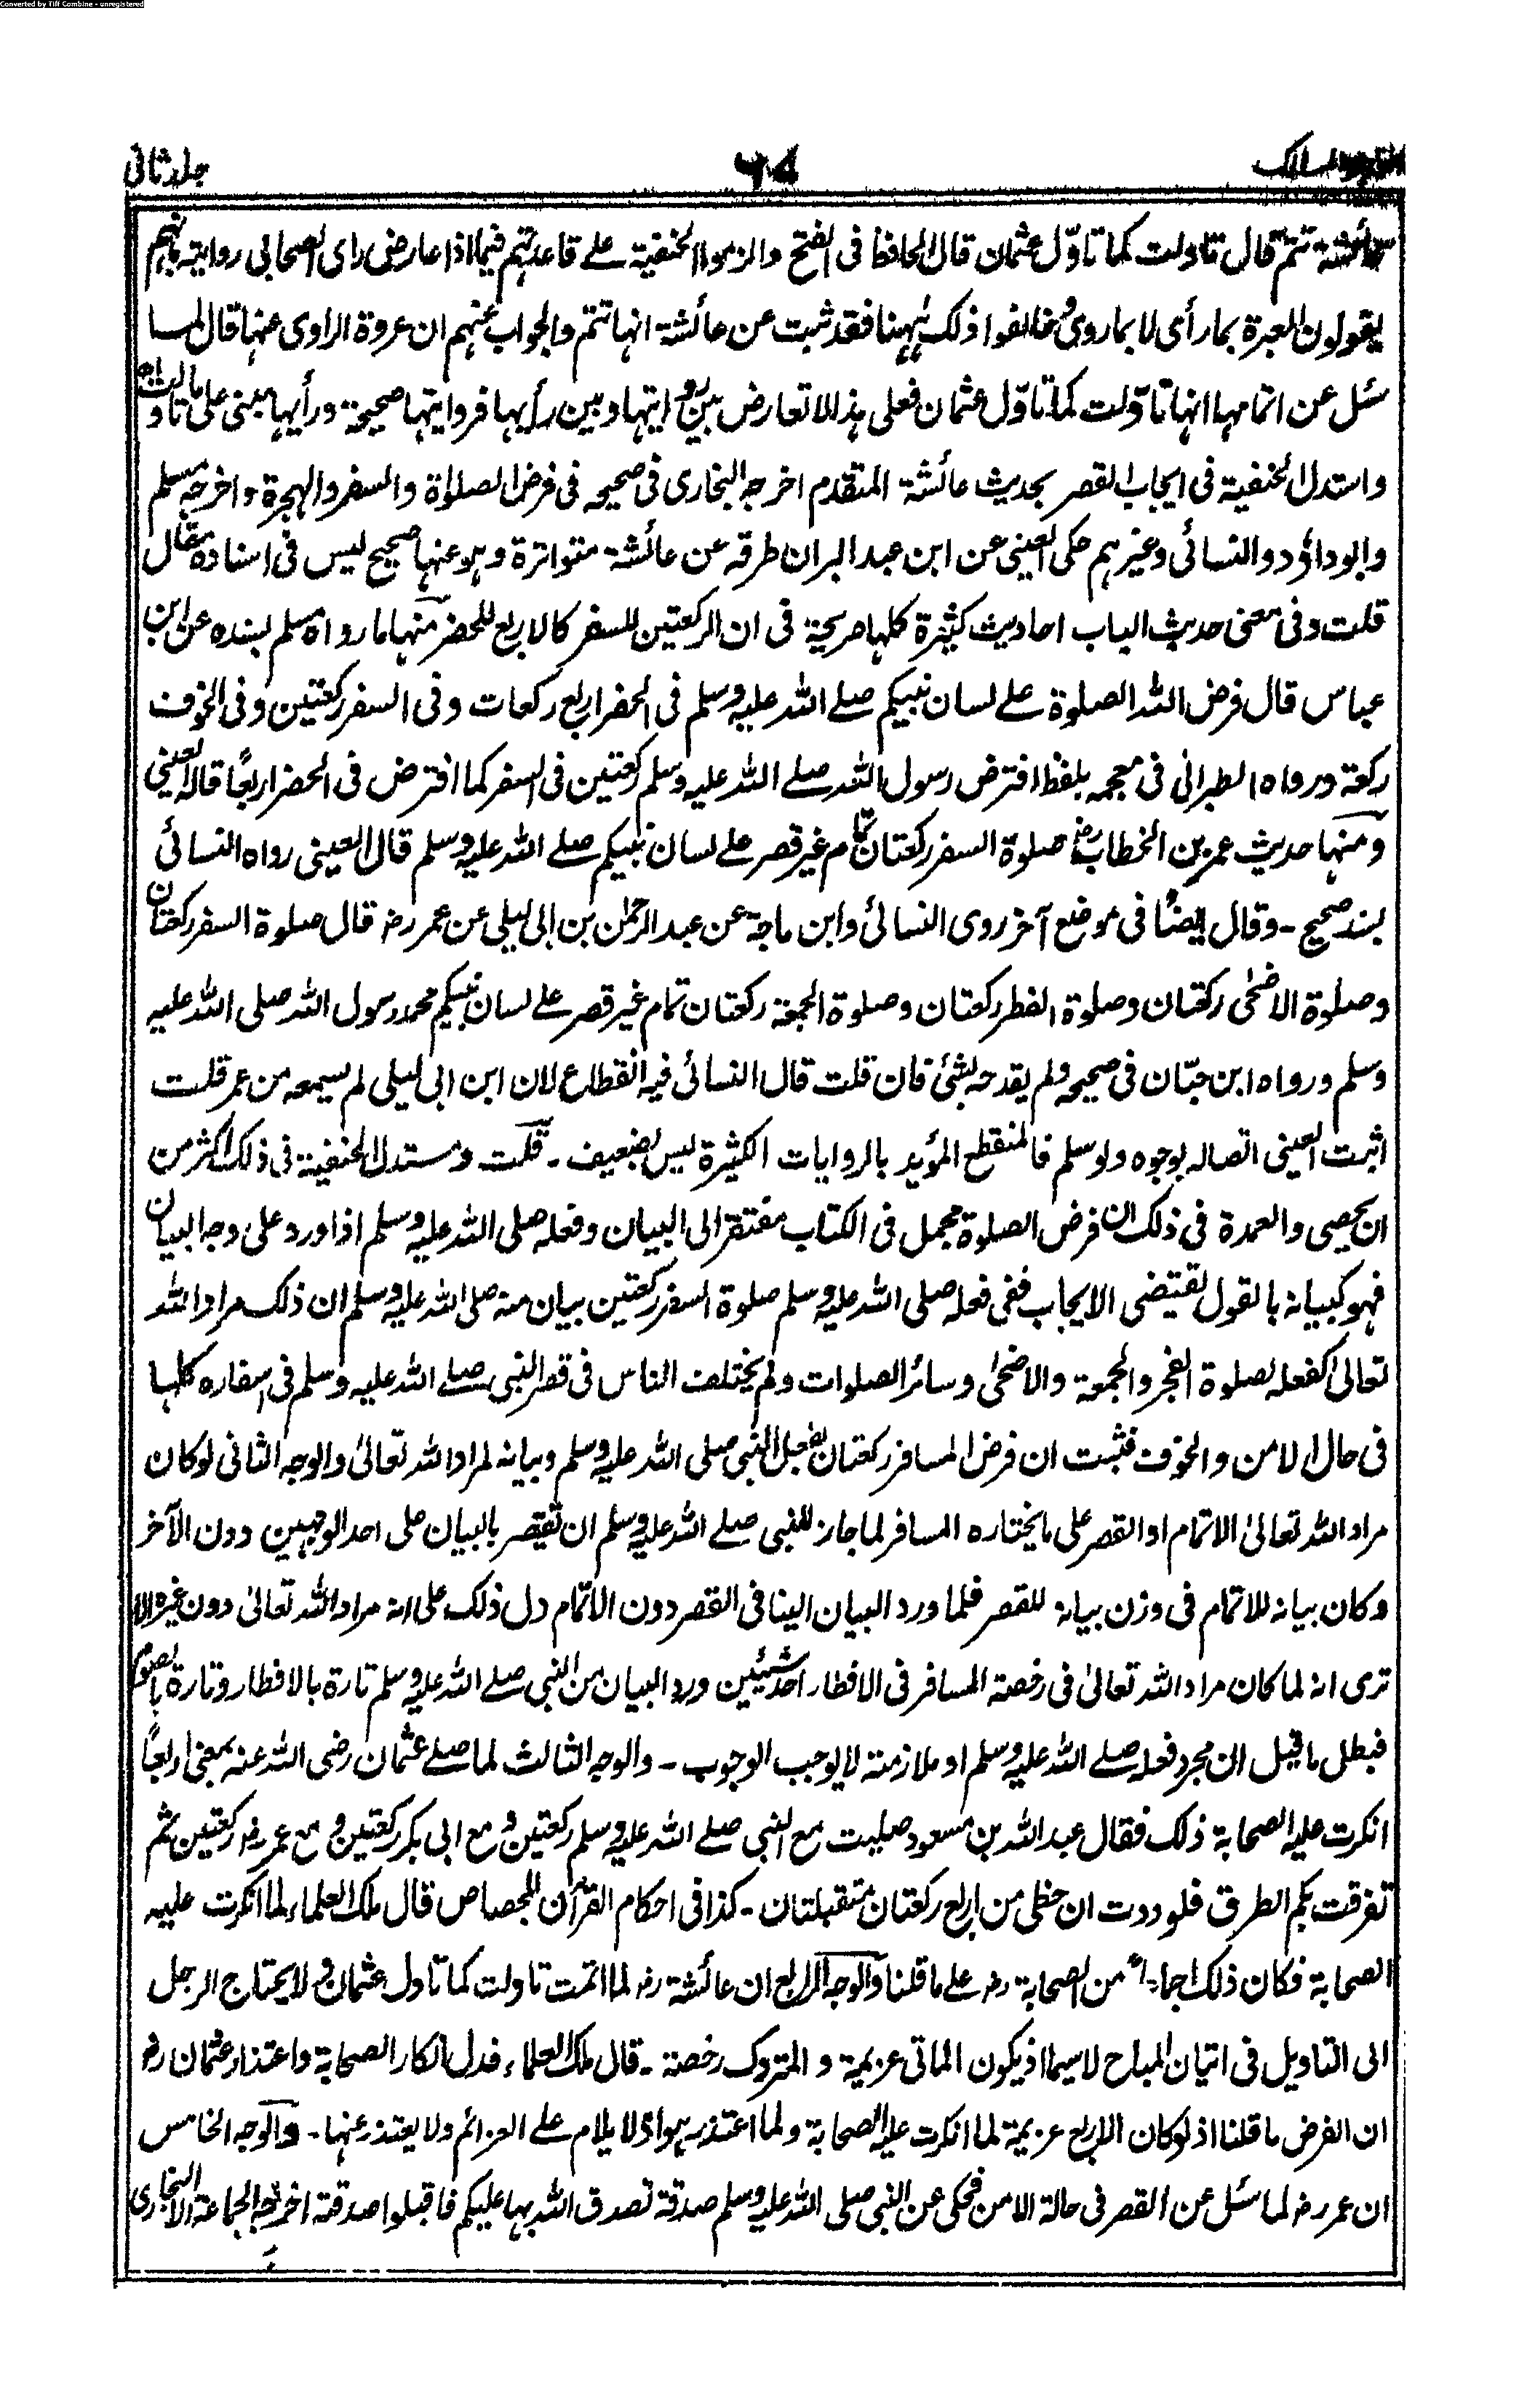 Converted by Tiff Combine - unregistered
المسالك
٦٤
جلد ثانی
عائشة تتم قال تاولت كما تاوّل عثمان قال الحافظ فى الفتح والزموا الحنفية علے قاعدتهم فيما اذا عارض راى الصحابى روايته بانهم
يقولون العبرة بما رأى لا بما روى وخالفوا ذلك ههنا فقد ثبت عن عائشة انها تتم والجواب عنهم ان عروة الراوى عنها قال لما
سئل عن اتمامها انها تأوّلت كما تأوّل عثمان فعلى هذا لا تعارض بين روايتها وبين رأيها فروايتها صحيحة ورأيها مبنى على ما تاولت اه
واستدل الحنفية فى ايجاب القصر بحديث عائشة المتقدم اخرجه البخارى فى صحيحه فى فرض الصلواة والسفر والهجرة واخرجه مسلم
وابو داؤد والنسائى وغيرهم حكى العينى عن ابن عبد البر ان طرقه عن عائشة متواترة وهو عنها صحيح ليس فى اسناده مقال
قلت وفى معنى حديث الباب احاديث كثيرة كلها صريحة فى ان الركعتين للسفر كالاربع للحضر منها ما رواه مسلم بسنده عن ابن
عباس قال فرض الله الصلوة علے لسان نبيكم صلے الله عليه وسلم فى الحضر اربع ركعات وفى السفر ركعتين وفى الخوف
ركعة ورواه الطبرانى فى معجمه بلفظ افترض رسول الله صلے الله عليه وسلم ركعتين فى السفر كما افترض فى الحضر اربعًا قاله العينى
ومنها حديث عمر بن الخطاب رضـ صلوة السفر ركعتان تمام غير قصر علے لسان نبيكم صلے الله عليه وسلم قال العينى رواه النسائى
بسند صحيح ـ وقال ايضًا فى موضع آخر روى النسائى وابن ماجة عن عبد الرحمٰن بن ابى ليلى عن عمر رضـ قال صلوة السفر ركعتان
وصلوة الاضحٰى ركعتان وصلوة الفطر ركعتان وصلوة الجمعة ركعتان تمام غير قصر علے لسان نبيكم محمد رسول الله صلى الله عليه
وسلم ورواه ابن حبّان فى صحيحه ولم يقدحه بشئ فان قلت قال النسائى فيه انقطاع لان ابن ابى ليلى لم يسمعه من عمر قلت
اثبت العينى اتصاله بوجوه ولو سلم فالمنقطع المؤيد بالروايات الكثيرة ليس بضعيف ـ قلت ومستدل الحنفية فى ذلك اكثر من
ان يحصى والعمدة فى ذلك ان فرض الصلوة مجمل فى الكتاب مفتقر الى البيان وفعله صلى الله عليه وسلم اذا ورد على وجه البيان
فهو كبيانه بالقول يقتضى الايجاب ففى فعله صلى الله عليه وسلم صلوة السفر ركعتين بيان منه صلى الله عليه وسلم ان ذلك مراد الله
تعالىٰ كفعله لصلوة الفجر والجمعة والاضحٰى وسائر الصلوات ولم يختلف الناس فى قصر النبى صلے الله عليه وسلم فى اسفاره كلها
فى حال الامن والخوف فثبت ان فرض المسافر ركعتان بفعل النبى صلى الله عليه وسلم وبيانه لمراد الله تعالىٰ والوجه الثانى لو كان
مراد الله تعالىٰ الاتمام او القصر على ما يختاره المسافر لما جاز للنبى صلے الله عليه وسلم ان يقتصر بالبيان على احد الوجهين دون الآخر
وكان بيانه للاتمام فى وزن بيانه للقصر فلما ورد البيان الينا فى القصر دون الاتمام دل ذلك على انه مراد الله تعالىٰ دون غيره الا
ترى انه لما كان مراد الله تعالىٰ فى رخصة المسافر فى الافطار احد شيئين ورد البيان من النبى صلے الله عليه وسلم تارة بالافطار وتارة بالصوم
فبطل ما قيل ان مجرد فعله صلے الله عليه وسلم او ملازمته لا يوجب الوجوب ـ والوجه الثالث لما صلے عثمان رضى الله عنه بمعنٰى اربعًا
انكرت عليه الصحابة ذلك فقال عبد الله بن مسعود صليت مع النبى صلے الله عليه وسلم ركعتين و مع ابى بكر ركعتين و مع عمر رضـ ركعتين ثم
تفرقت بكم الطرق فلوددت ان حظى من اربع ركعتان متقبلتان ـ كذا فى احكام القرآن للجصاص قال ملك العلماء لما انكرت عليه
الصحابة فكان ذلك اجماعا من الصحابة رضـ علے ما قلنا والوجه الرابع ان عائشة رضـ لما اتمت تاولت كما تاول عثمان و لا يحتاج الرجل
الى التاويل فى اتيان المباح لا سيما اذ يكون الماتى عزيمة و المتروك رخصة ـ قال ملك العلماء فدل انكار الصحابة واعتذار عثمان رضـ
ان الفرض ما قلنا اذ لو كان الاربع عزيمة لما انكرت عليه الصحابة ولما اعتذر هو اذ لا يلام علے العزائم ولا يعتذر عنها ـ والوجه الخامس
ان عمر رضـ لما سئل عن القصر فى حالة الامن فحكى عن النبى صلى الله عليه وسلم صدقة تصدق الله بها عليكم فاقبلوا صدقته اخرجه الجماعة الا البخارى